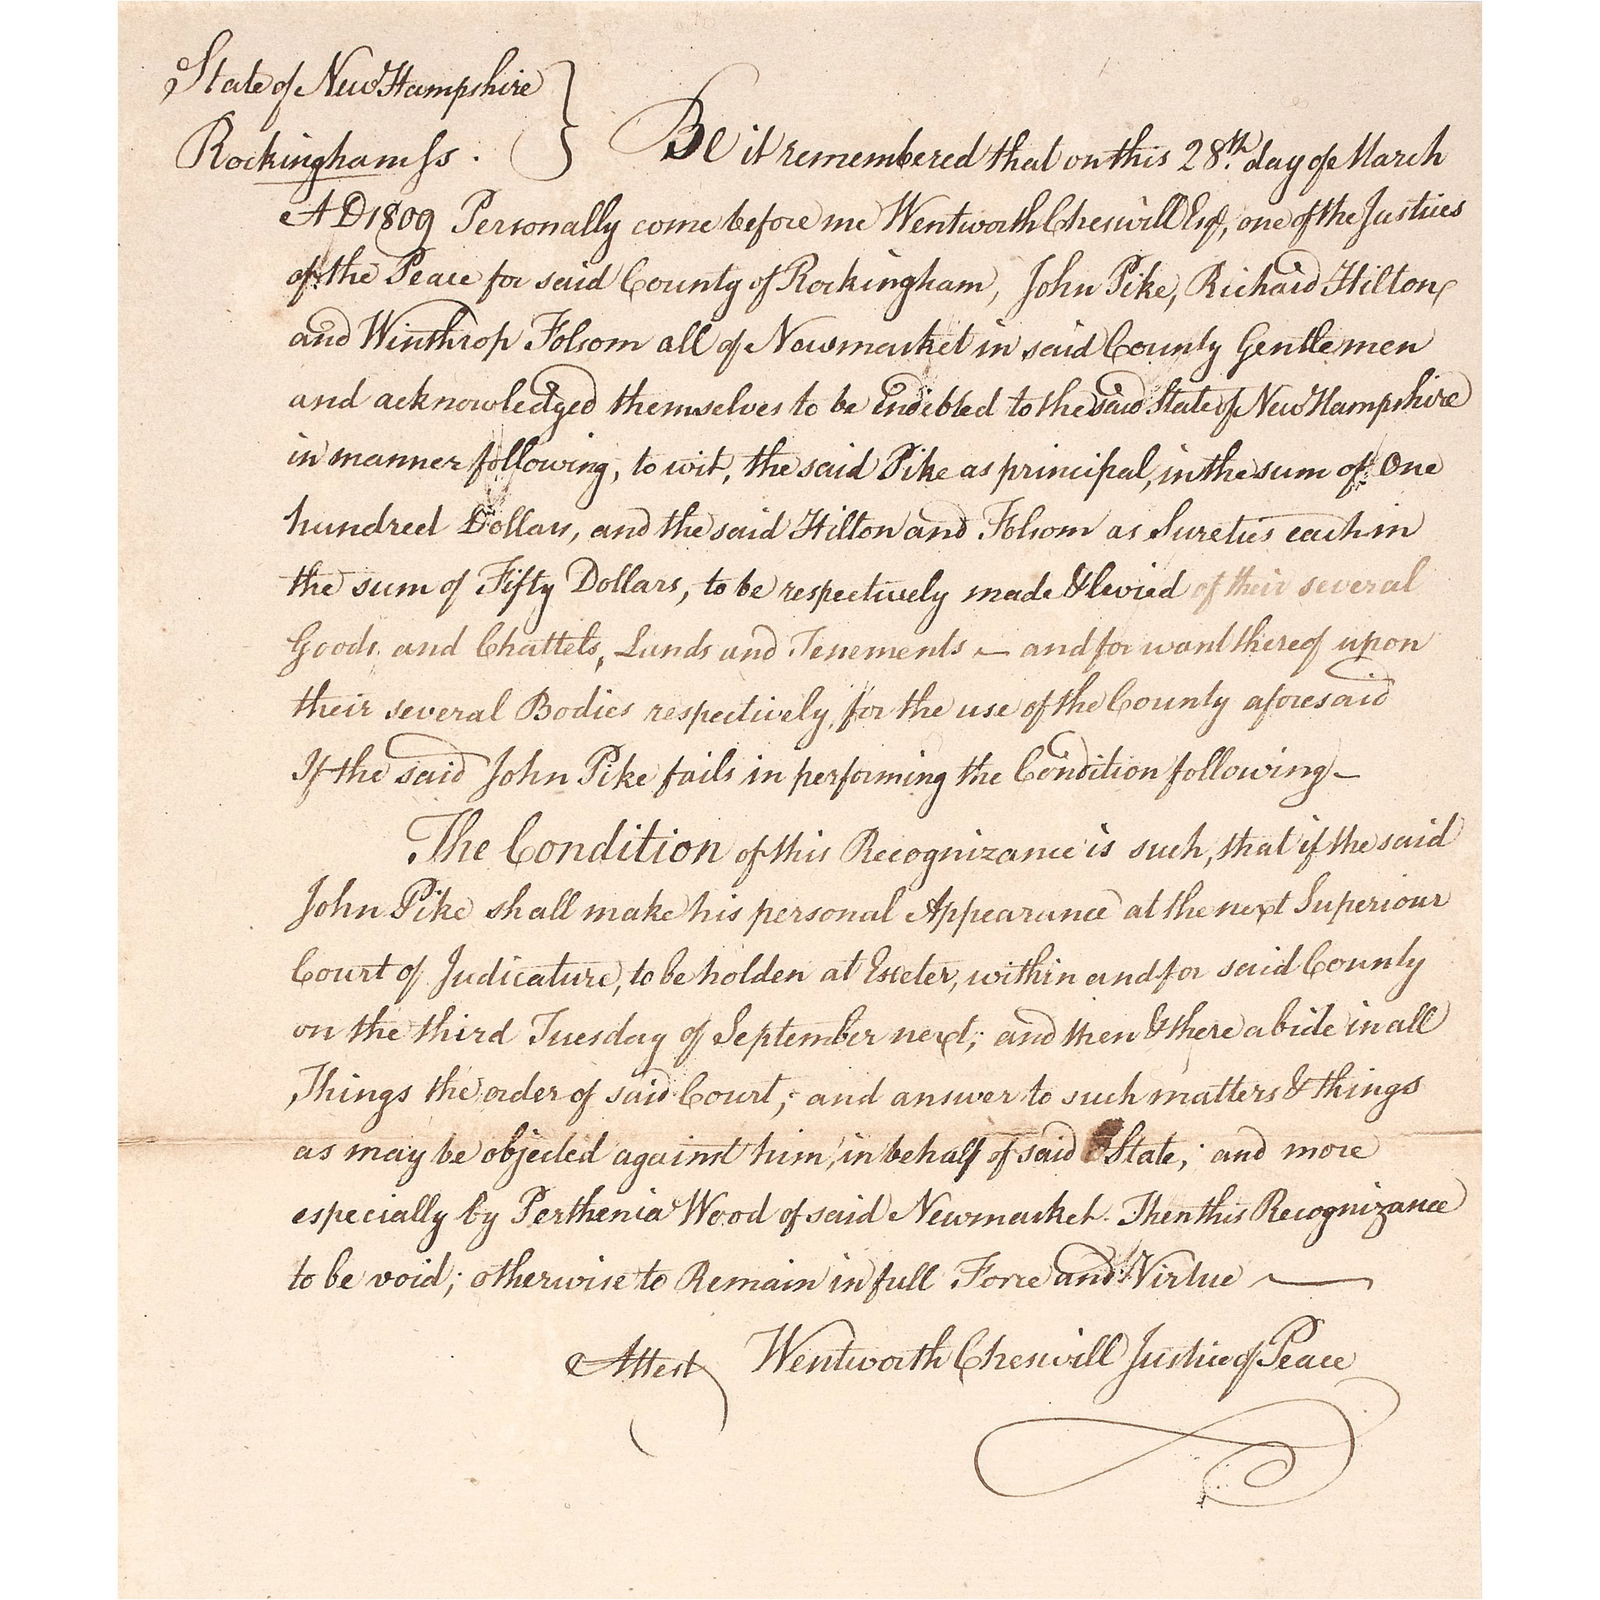 State of New Hampshire
Rockingham ss.
Be it remembered that on this 28.th day of March
A D 1809 Personally come before me Wentworth Cheswill Esqr, one of the Justices
of the Peace for said County of Rockingham, John Pike, Richard Hilton,
and Winthrop Folsom all of Newmarket in said County Gentlemen
and acknowledged themselves to be Endebted to the said State of New Hampshire
in manner following, to wit, the said Pike as principal, in the sum of One
hundred Dollars, and the said Hilton and Folsom as Sureties each in
the sum of Fifty Dollars, to be respectively made & levied of their several
Goods and Chattels, Lands and Tenements — and for want thereof upon
their several Bodies respectively, for the use of the County aforesaid
If the said John Pike fails in performing the Condition following —
The Condition of this Recognizance is such, that if the said
John Pike shall make his personal Appearance at the next Superiour
Court of Judicature, to be holden at Exeter, within and for said County
on the third Tuesday of September next; and then & there abide in all
Things the order of said Court; and answer to such matters & things
as may be objected against him, in behalf of said State; and more
especially by Perthenia Wood of said Newmarket. Then this Recognizance
to be void; otherwise to Remain in full Force and Virtue —
Attest Wentworth Cheswill Justice of Peace